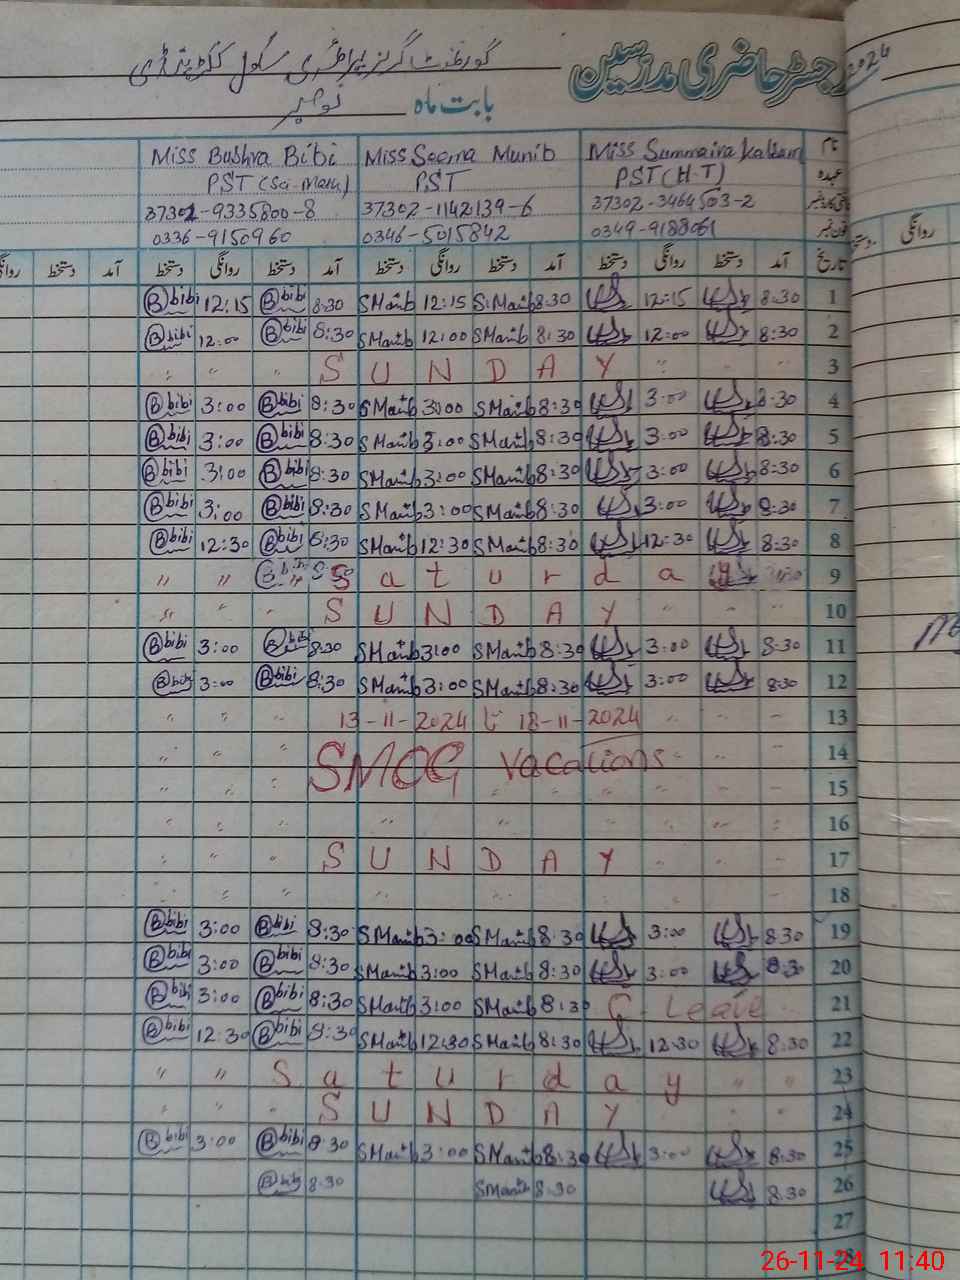 رجسٹر حاضری مدرسین گورنمنٹ گرلز پرائمری سکول
2024
بابت ماہ نومبر
نام Miss Summaira Kalsam Miss Seema Munib Miss Bushra Bibi
عہدہ PST (H-T) PST PST (Sci-Math)
37302-3464503-2 37302-1142139-6 37302-9335800-8
فون نمبر 0349-9188061 0346-5015842 0336-9150960
تاریخ آمد دستخط روانگی دستخط آمد دستخط روانگی دستخط آمد دستخط روانگی دستخط آمد دستخط روانگی
روانگی
1 8:30 12:15 8:30 SMunib 12:15 SMunib 8:30 Bbibi 12:15 Bbibi
2 8:30 12:00 8:30 SMunib 12:00 SMunib 8:30 Bbibi 12:00 Bbibi
3 SUNDAY
4 8:30 3:00 8:30 SMunib 3:00 SMunib 8:30 Bbibi 3:00 Bbibi
5 8:30 3:00 8:30 SMunib 3:00 SMunib 8:30 Bbibi 3:00 Bbibi
6 8:30 3:00 8:30 SMunib 3:00 SMunib 8:30 Bbibi 3:00 Bbibi
7 8:30 3:00 8:30 SMunib 3:00 SMunib 8:30 Bbibi 3:00 Bbibi
8 8:30 12:30 8:30 SMunib 12:30 SMunib 8:30 Bbibi 12:30 Bbibi
9 Saturday
10 SUNDAY
11 8:30 3:00 8:30 SMunib 3:00 SMunib 8:30 Bbibi 3:00 Bbibi
12 8:30 3:00 8:30 SMunib 3:00 SMunib 8:30 Bbibi 3:00 Bbibi
13 13-11-2024 تا 18-11-2024
14 SMOG Vacations
15
16
17 SUNDAY
18
19 8:30 3:00 8:30 SMunib 3:00 SMunib 8:30 Bbibi 3:00 Bbibi
20 8:30 3:00 8:30 SMunib 3:00 SMunib 8:30 Bbibi 3:00 Bbibi
21 C. Leave 8:30 SMunib 3:00 SMunib 8:30 Bbibi 3:00 Bbibi
22 8:30 12:30 8:30 SMunib 12:30 SMunib 8:30 Bbibi 12:30 Bbibi
23 Saturday
24 SUNDAY
25 8:30 3:00 8:30 SMunib 3:00 SMunib 8:30 Bbibi 3:00 Bbibi
26 8:30 8:30 SMunib 8:30 Bbibi
27
28
26-11-24 11:40